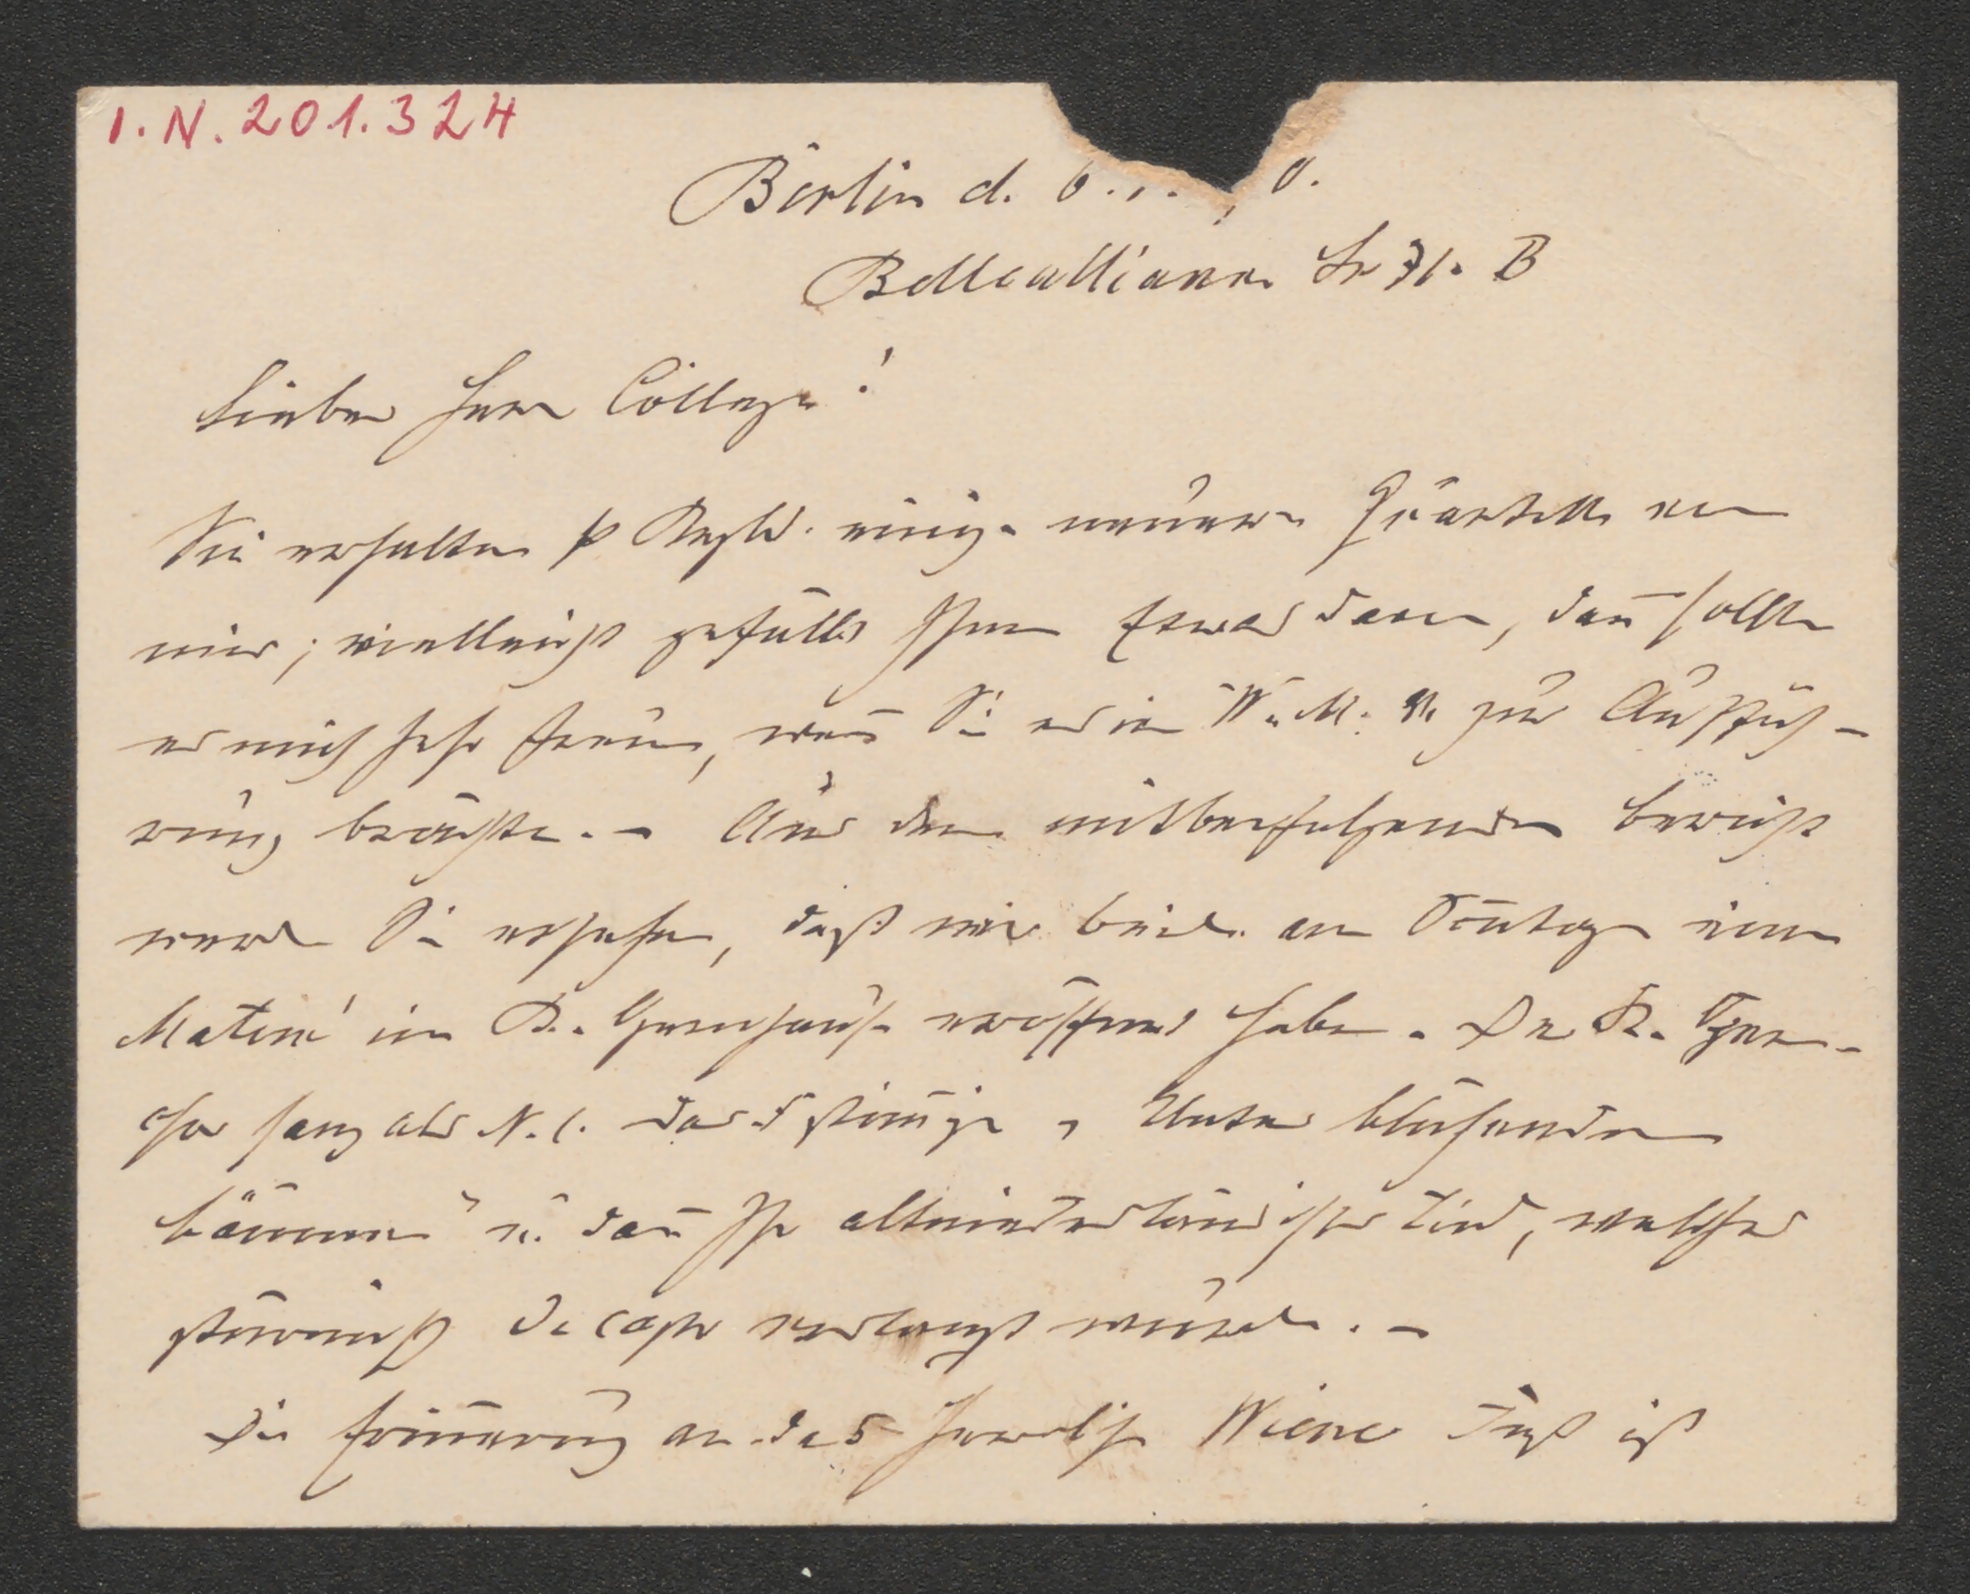 I.N. 201.324
Berlin d. 6.
Bellealliance Str 71. B
Lieber Herr College!
Sie erhalten p einige neuere Quartette von
mir; vielleicht gefällt Ihnen Etwas davon, dañ sollte
es mich sehr freuen, weñ Sie es in W. M. zur Auffüh-
rung brächte. – Aus dem mitbeifolgenden Bericht
werden Sie ersehen, daß wir beide am Soñtag eine
Matiné im K. Opernhause eröffnet haben. Der K. Oper-
chor sang als N. 1. das stim̄ige „Unter blühenden
Bäumen" u. dañ Ihr altniederländisches Lied, welches
stürmisch Da capo verlangt wurde. –
Die Erin̄erung an das herrliche Wiener Fest ist